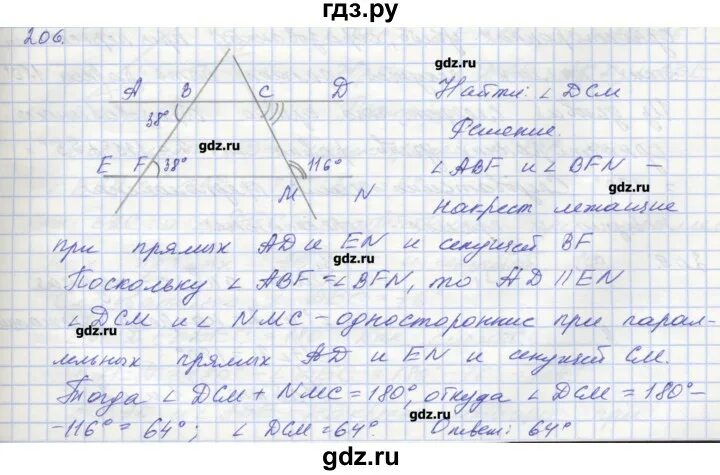 гдз.ру
206.
A B C D
38°
E F 38° 116°
M N
Найти: ∠DCM
Решение.
∠ABF и ∠BFN –
накрест лежащие
при прямых AD и EN и секущей BF
Поскольку ∠ABF = ∠BFN, то AD || EN
∠DCM и ∠NMC – односторонние при парал-
лельных прямых AD и EN и секущей CM.
Тогда ∠DCM + NMC = 180°, откуда ∠DCM = 180°-
-116° = 64°; ∠DCM = 64°. Ответ: 64°
gdz.ru
gdz.ru
gdz.ru
gdz.ru
gdz.ru
gdz.ru